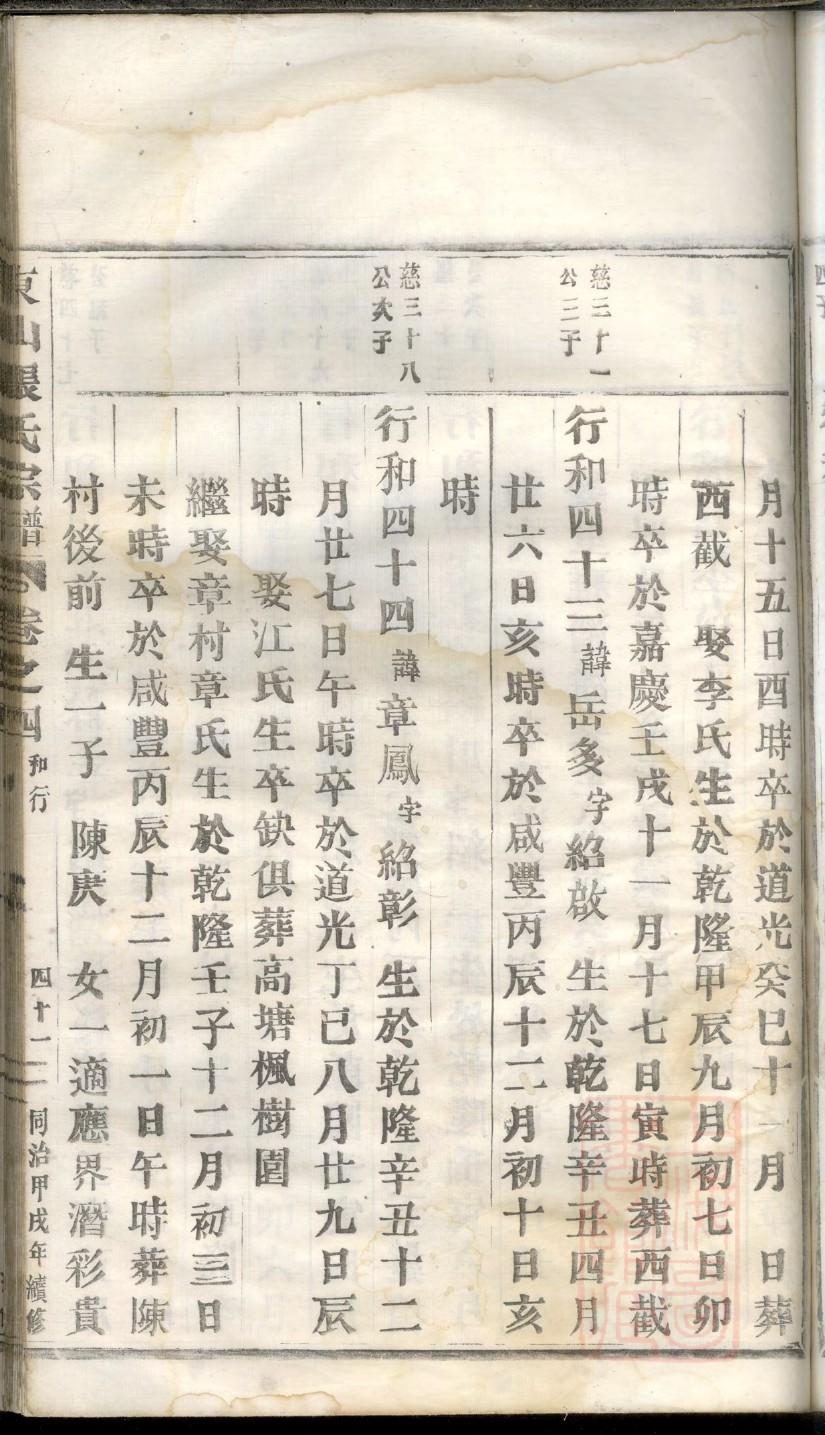 月十五日酉時卒於道光癸巳十一月　日葬
西截　娶李氏生於乾隆甲辰九月初七日卯
時卒於嘉慶壬戌十一月十七日寅時葬西截
慈三十一
公三子
行和四十三諱岳多字紹啟　生於乾隆辛丑四月
廿六日亥時卒於咸豐丙辰十二月初十日亥
時
慈三十八
公次子
行和四十四諱章鳳字紹彰　生於乾隆辛丑十二
月廿七日午時卒於道光丁巳八月廿九日辰
時　娶江氏生卒缺俱葬高塘楓樹園
繼娶章村章氏生於乾隆壬子十二月初三日
未時卒於咸豐丙辰十二月初一日午時葬陳
村後前　生一子　陳庚　女一適應界潛彩貴
東山張氏宗譜　卷之四　和行　四十二　同治甲戌年續修